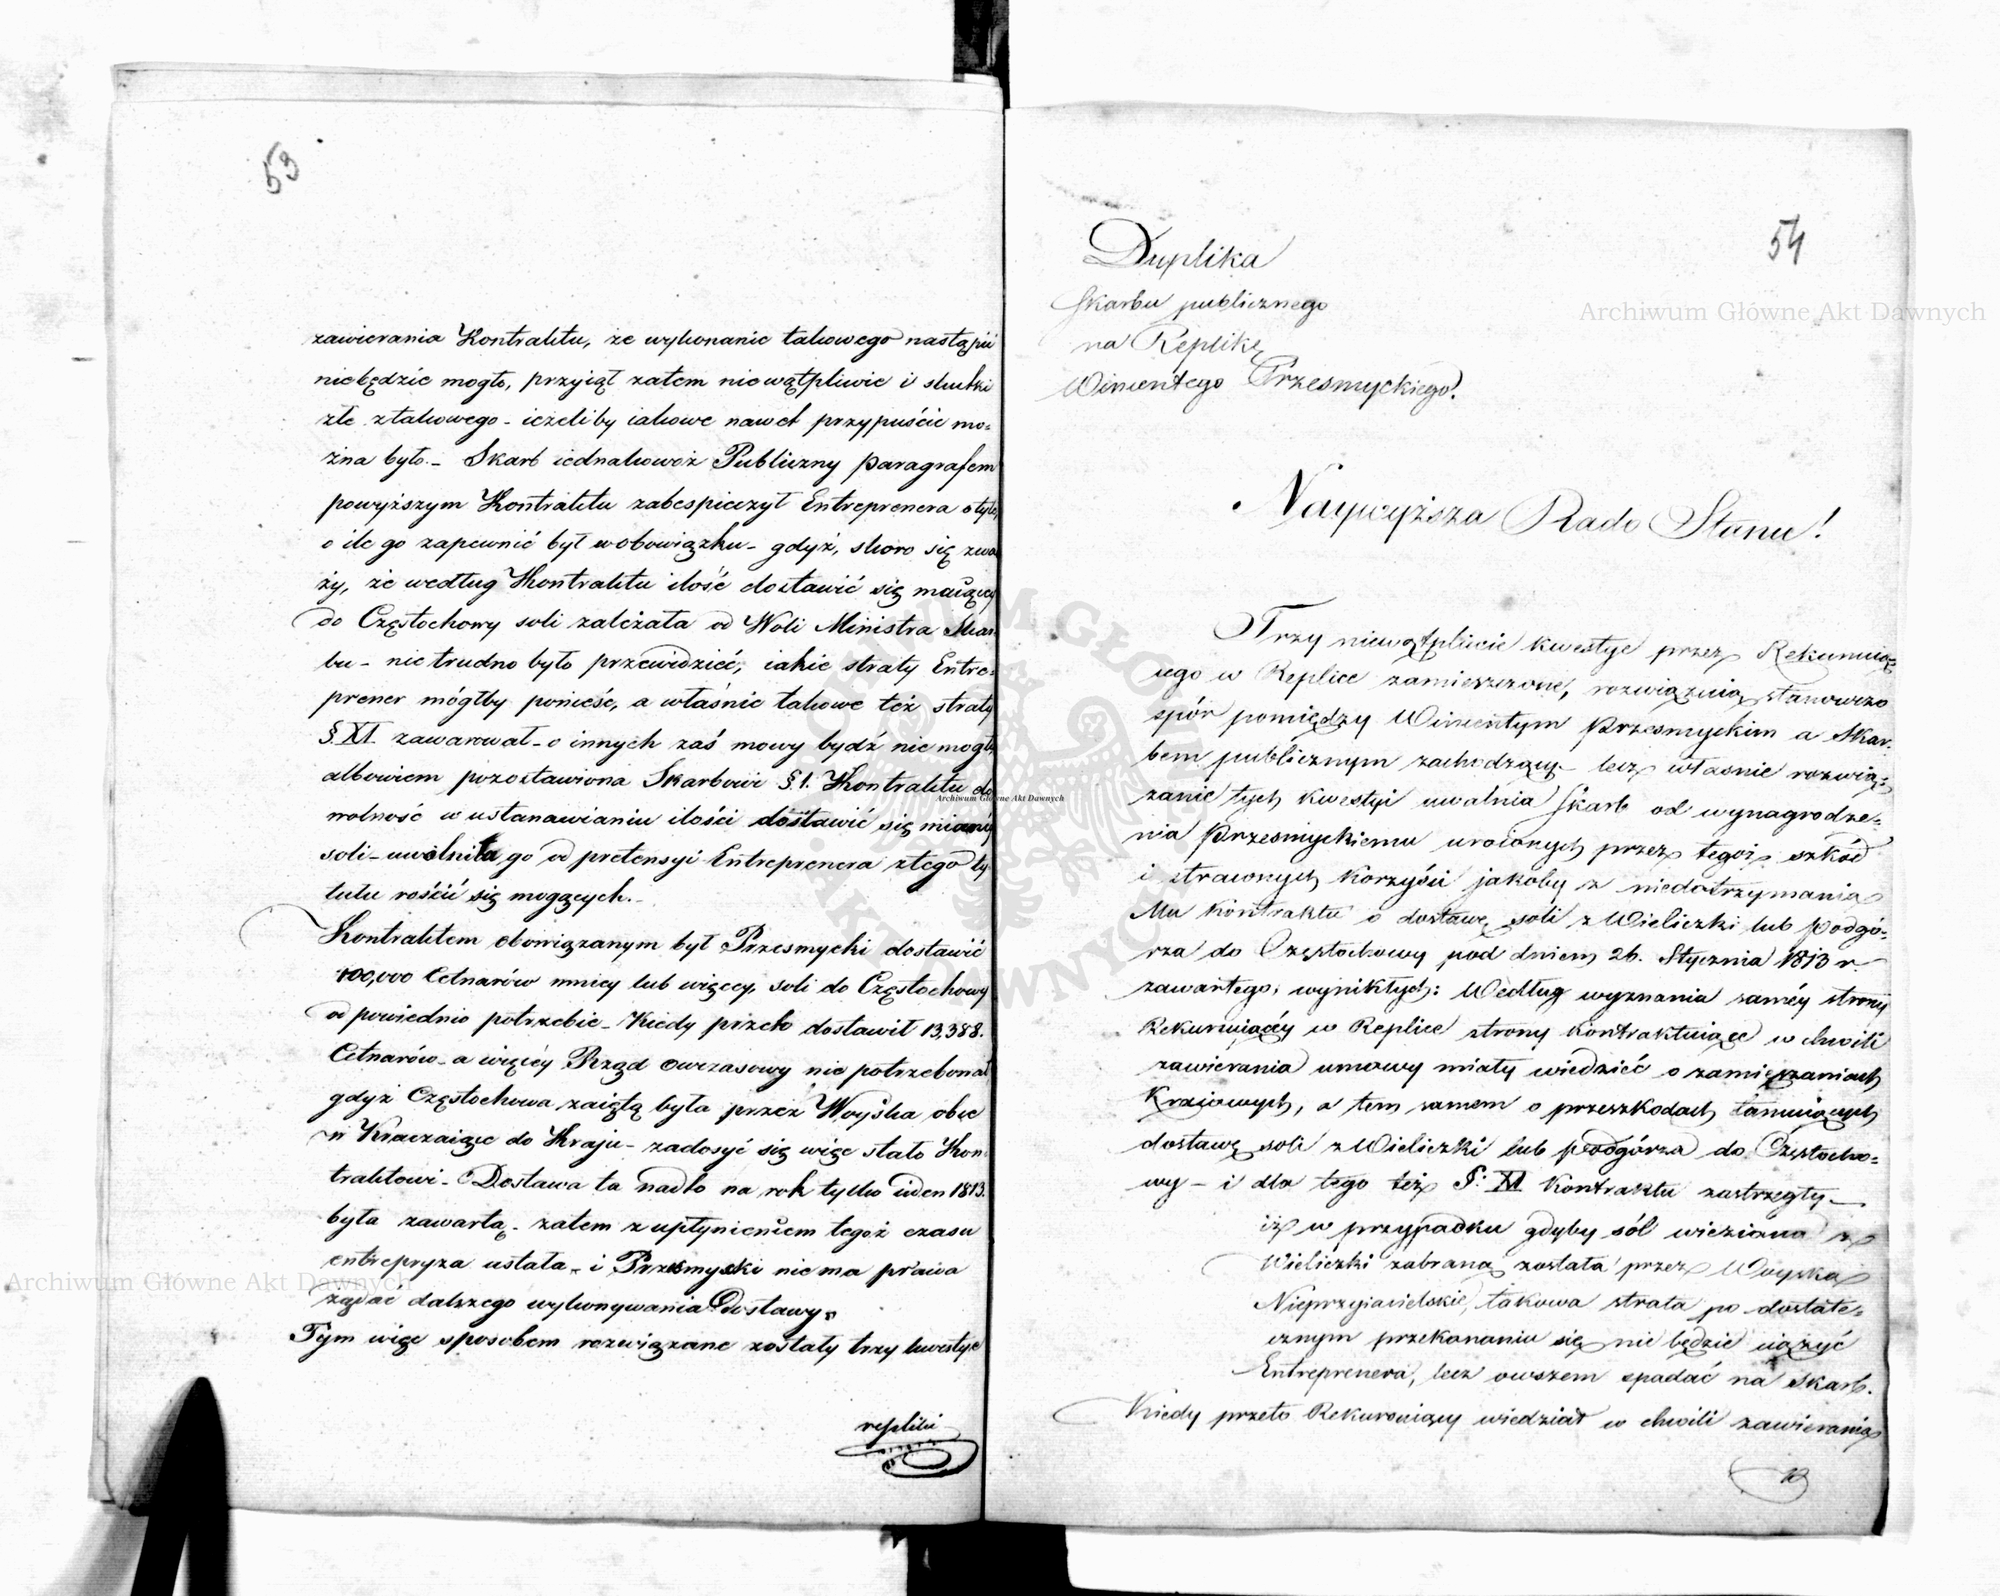 53
zawierania Kontraktu, że wykonanie takowego nastąpić
niebędzie mogło, przyiął zatem niewątpliwie i skutki
złe ztakowego - ieżeliby iakowe nawet przypuścić mo-
żna było. - Skarb iednakowoż Publiczny paragrafem
powyższym Kontraktu zabespieczył Entreprenera otyle,
o ile go zapewnić był wobowiązku - gdyż, skoro się zwa
ży, że według Kontraktu ilość dostawić się maiącey
do Częstochowy soli zależała od Woli Ministra Skar
bu - nie trudno było przewidzieć, iakie straty Entre-
prener mógłby ponieść, a właśnie takowe też straty
§ XI. zawarował - o innych zaś mowy bydź nie mogło
albowiem pozostawiona Skarbowi §. 1. Kontraktu do
wolność w ustanawianiu ilości dostawić się mianéy
soli - uwolniła go od pretensyi Entreprenera ztego ty
tułu rościć się mogących. -
Kontraktem obowiązanym był Przesmycki dostawić
100,000 Cetnarów mniey lub więcey, soli do Częstochowy
odpowiednio potrzebie - Kiedy przeto dostawił 13,388.
Cetnarów - a więcéy Rząd owczasowy nie potrzebował
gdyż Częstochowa zaiętą była przez Woyska obce
w Kraczaiące do Kraju - zadosyć się więc stało Kon
traktowi - Dostawa ta nadto na rok tylko ieden 1813.
była zawartą - zatem z upłynieniem tegoż czasu
entrepryza ustała - i Przesmycki nie ma prawa
żądać dalszego wykonywania Dostawy.
Tym więc sposobem rozwiązane zostały trzy kwestye
repliki
54
Duplika
Skarbu publicznego
na Replikę
Wincentego Przesmyckiego.
Naywyższa Rado Stanu!
Trzy niewątpliwie kwestye przez Rekuruią-
cego w Replice zamieszczone, rozwiązuią stanowczo
spór pomiędzy Wincentym Przesmyckim a Skar-
bem publicznym zachodzący - lecz właśnie rozwią-
zanie tych kwestyi uwalnia Skarb od wynagrodze-
nia Przesmyckiemu uroionych przez tegoż szkód
i straconych korzyści jakoby z niedotrzymania
Mu kontraktu o dostawę soli z Wieliczki lub Podgó-
rza do Częstochowy pod dniem 26. Stycznia 1813 r.
zawartego, wynikłych: Według wyznania saméy strony
Rekuruiącéy w Replice strony kontraktuiące w chwili
zawierania umowy miały wiedzieć o zamięszaniach
Kraiowych, a tem samem o przeszkodach tamuiących
dostawę soli z Wieliczki lub podgórza do Częstocho-
wy - i dla tego też §: XI Kontraktu zastrzegły -
iż w przypadku gdyby sól wieziona z
Wieliczki zabraną została przez Woyska
Nieprzyiacielskie, takowa strata po dostate-
cznym przekonaniu się nie będzie ciążyć
Entreprenera, lecz owszem spadać na Skarb.
Kiedy przeto Rekuruiący wiedział w chwili zawierania
Archiwum Główne Akt Dawnych
Archiwum Główne Akt Dawnych
Archiwum Główne Akt Dawnych